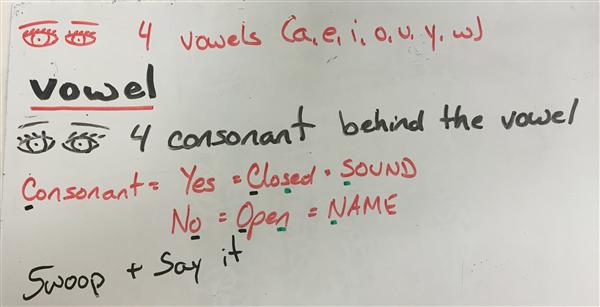 4 vowels (a, e, i, o, u, y, w)
vowel
4 consonant behind the vowel
Consonant = Yes = Closed = SOUND
No = Open = NAME
Swoop + Say it